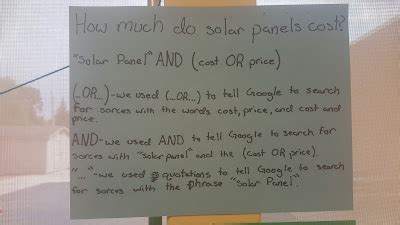 How much do solar panels cost?
"Solar Panel" AND (cost OR price)
(...OR...)-we used (...OR...) to tell Google to search
for sorces with the words cost, price, and cost and
price.
AND-we used AND to tell Google to search for
sorces with "solar panel" and the (cost OR price).
"..."-we used quotations to tell Google to search
for sorces with the phrase "Solar Panel".